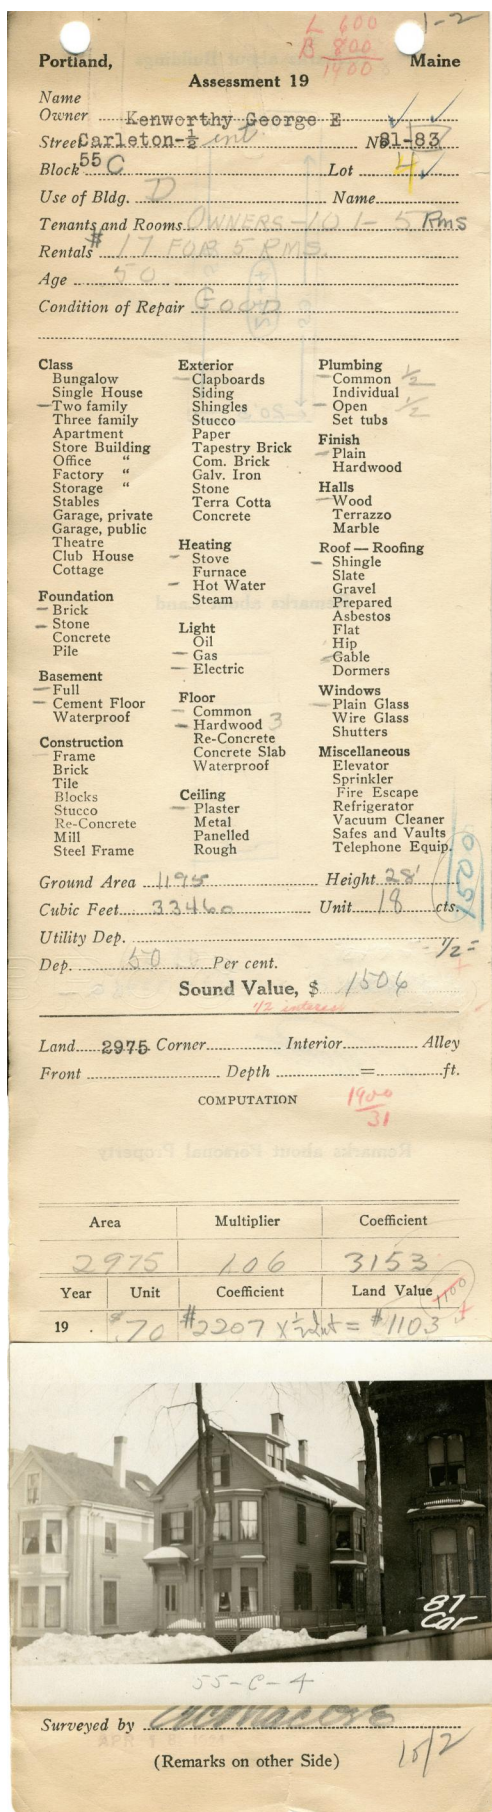 L 600
B 800
1400
1-2
Portland, Maine
Assessment 19
Name
Owner Kenworthy George E
Street Carleton-½ int. No 81-83
Block 55 C Lot 4
Use of Bldg. D Name
Tenants and Rooms OWNERS-10 1-5 Rms
Rentals $17 FOR 5 RMS.
Age 50
Condition of Repair GOOD
Class
Bungalow
Single House
Two family
Three family
Apartment
Store Building
Office "
Factory "
Storage "
Stables
Garage, private
Garage, public
Theatre
Club House
Cottage
Foundation
Brick
Stone
Concrete
Pile
Basement
Full
Cement Floor
Waterproof
Construction
Frame
Brick
Tile
Blocks
Stucco
Re-Concrete
Mill
Steel Frame
Exterior
Clapboards
Siding
Shingles
Stucco
Paper
Tapestry Brick
Com. Brick
Galv. Iron
Stone
Terra Cotta
Concrete
Heating
Stove
Furnace
Hot Water
Steam
Light
Oil
Gas
Electric
Floor
Common
Hardwood 3
Re-Concrete
Concrete Slab
Waterproof
Ceiling
Plaster
Metal
Panelled
Rough
Plumbing
Common ½
Individual
Open ½
Set tubs
Finish
Plain
Hardwood
Halls
Wood
Terrazzo
Marble
Roof — Roofing
Shingle
Slate
Gravel
Prepared
Asbestos
Flat
Hip
Gable
Dormers
Windows
Plain Glass
Wire Glass
Shutters
Miscellaneous
Elevator
Sprinkler
Fire Escape
Refrigerator
Vacuum Cleaner
Safes and Vaults
Telephone Equip.
1500
Ground Area 1195 Height 28'
Cubic Feet 33460 Unit 18 cts.
Utility Dep.
Dep. 50 Per cent. - ½ =
Sound Value, $ 1506
½ interest
Land 2975 Corner Interior Alley
Front Depth = ft.
COMPUTATION 1900
31
Area Multiplier Coefficient
2975 106 3153
Year Unit Coefficient Land Value 1100
19 . $.70 #2207 x ½ int = #1103
81
Car
55-C-4
Surveyed by
(Remarks on other Side)
10/2